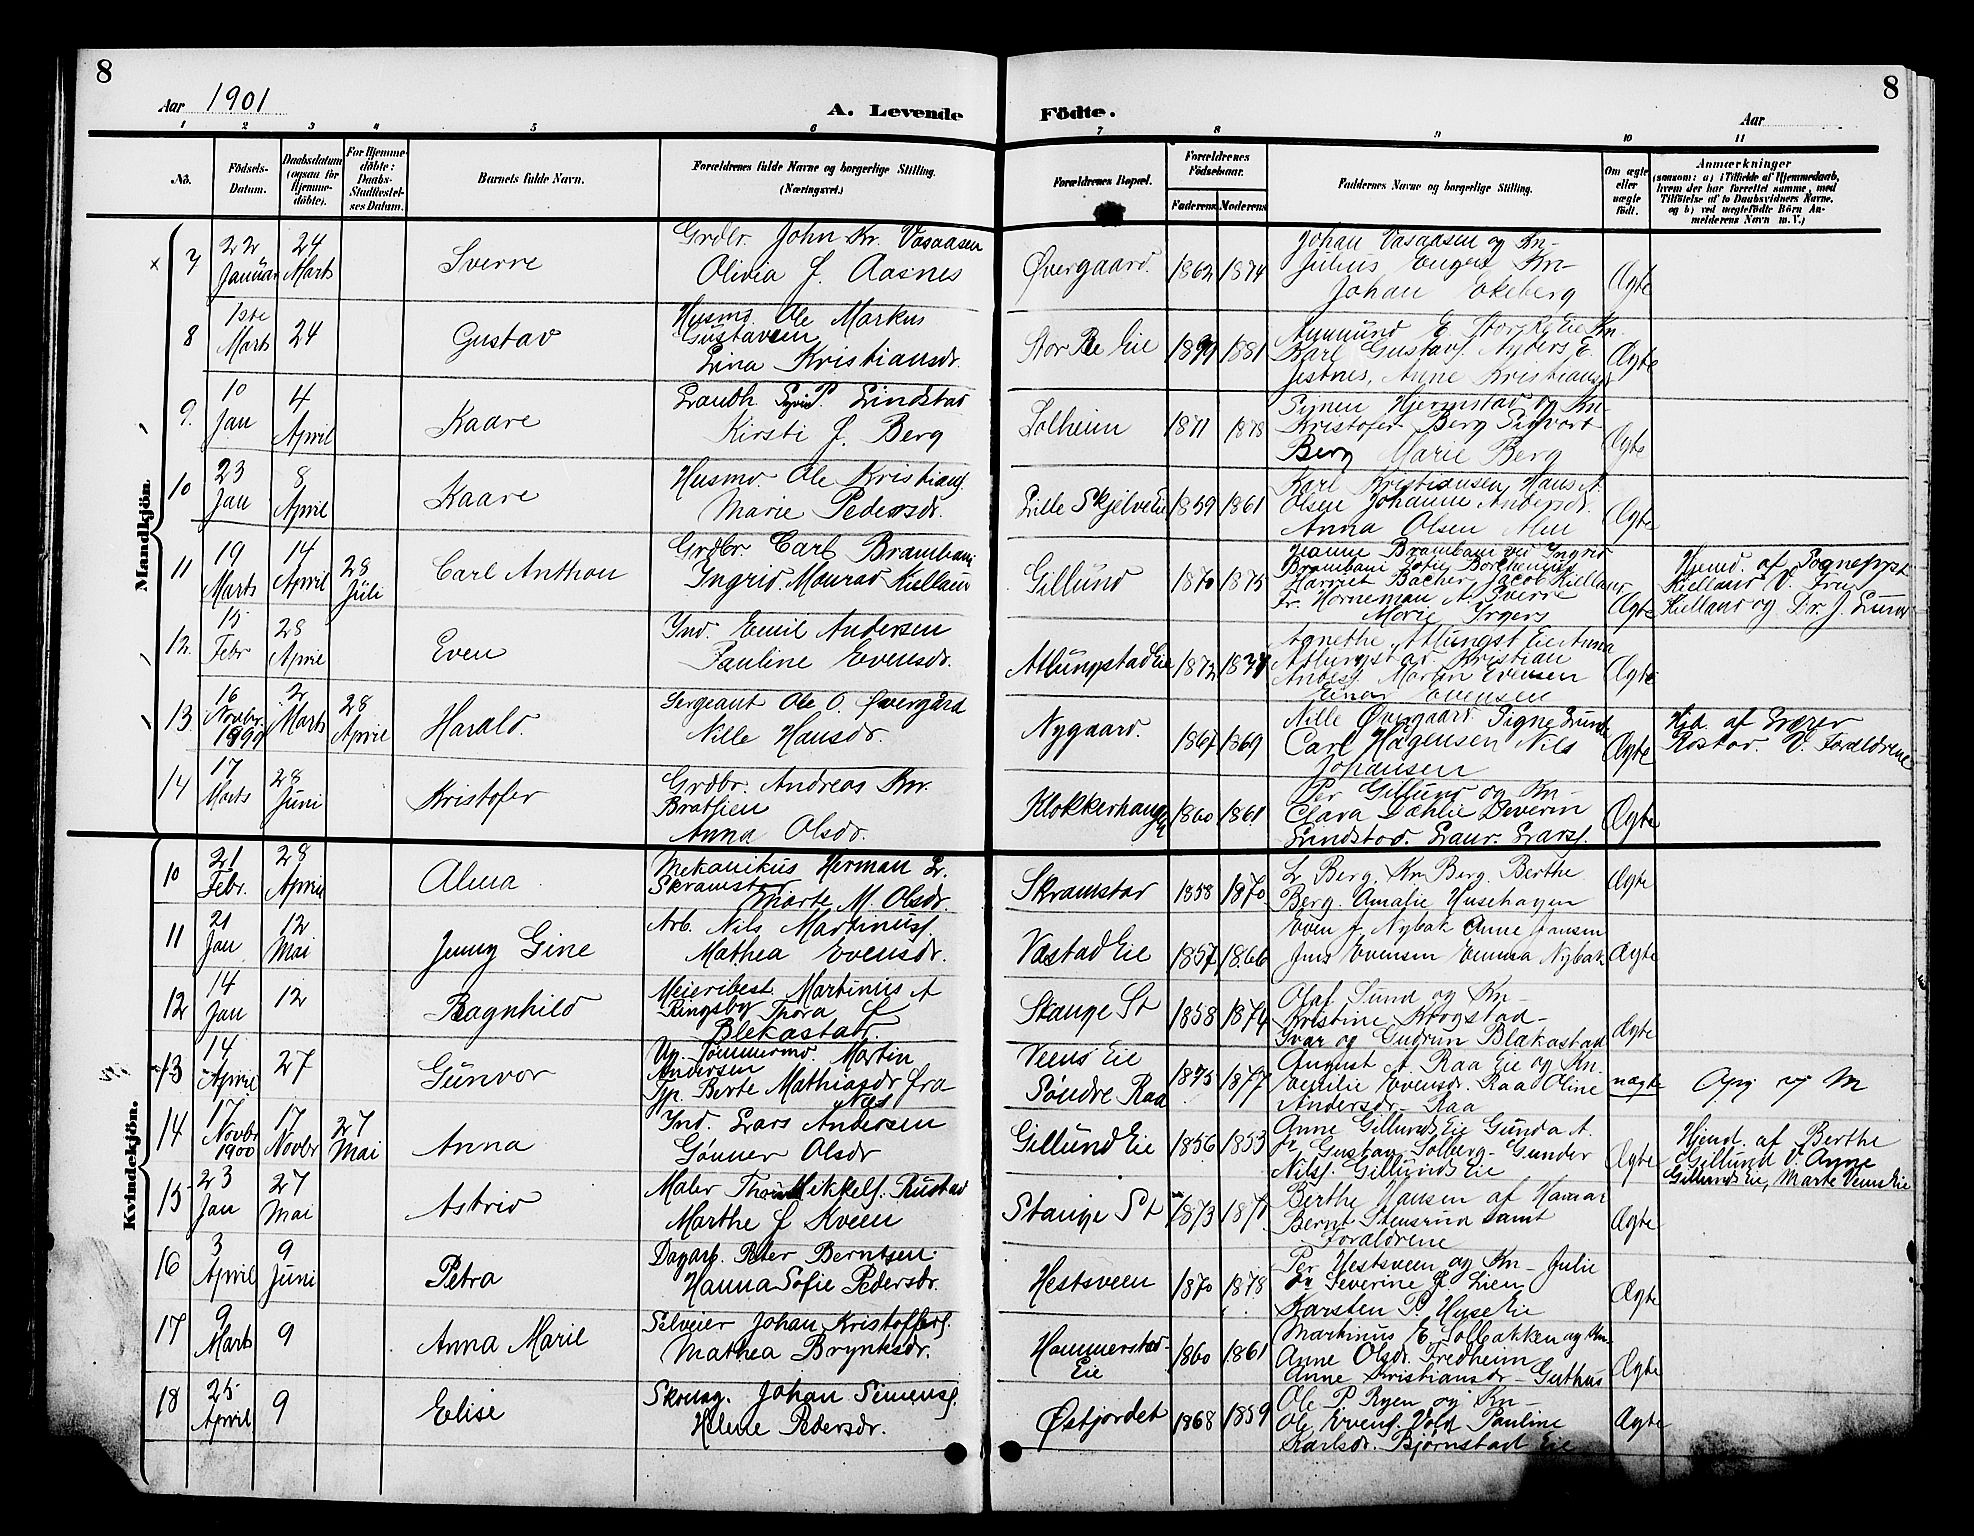 8
8
Aar 1901
A. Levende
Födte.
Aar
1 2 3 4 5 6 7 8 9 10 11
No.
Födsels-Datum.
Daabsdatum (ogsaa for Hjemmedöbte).
For Hjemmedöbte: Daabs-Stadfæstelses Datum.
Barnets fulde Navn.
Forældrenes fulde Navne og borgerlige Stilling. (Næringsvei.)
Forældrenes Bopæl.
Forældrenes Födselsaar.
Faderens Moderens
Faddernes Navne og borgerlige Stilling.
Om ægte eller uægte födt.
Anmærkninger (saasom: a) i Tilfælde af Hjemmedaab, hvem der har forrettet samme, med Tilföielse af to Daabsvidners Navne, og b) ved uægtefödte Börn Anmelderens Navn m. V.)
Mandkjön.
7 22 Januar 24 Marts Sverre Grdbr. John Kr. Vasaasen Olivia J. Aasnes Øvergaard. 1862 1874 Johan Vasaasen og Kn- Julius Enger Kn- Johan Ekeberg Ægte
8 1ste Marts 24 Gustav Husmd Ole Markus Gustavsen Lina Kristiansdr. Stor Re Eie 1881 Amund E. Stor Re Eie Kn. Karl Gustavs. Nybers E. Jestnes, Anne Kristiansd Ægte
9. 10 Jan 4 April Kaare Landh. P. Lindstad Kirsti J. Berg Solheim 1871 1878 Signe Hjermstad og Kn- Kristofer Berg Sigvart Berg Marie Berg Ægte
10 23 Jan 8 April Kaare Husmd. Ole Kristians. Marie Pedersdr. Lille Skjelve Eie 1859 1861 Karl Kristiansen Hans A. Olsen Johanne Andersdr. Anna Olsen Alm Ægte
11 19 Marts 14 April 28 Juli Carl Anthon Grdbr Carl Brambani Ingrid Monrad Kielland Gillund 1870 1875 Hanne Brambani ved Ingrid Brambani Sofie Borchenius Harriet Backer Jacob Kielland Fr. Horneman A. Sverre Marie Irgens Ægte Hjemd. af Sogneprst Kielland V. Frus Kielland og Fr. J. Lund
12. 15 Febr 28 April Even Ind. Emil Andersen Pauline Evensdr. Atlungstad Eie 1872 Agnethe Atlungst Eie Anna Atlungstad. Kristian Anders. Martin Evensen Einar Evensen Ægte
13 16 Novbr. 1899 2 Marts 28 April Harald. Sergeant Ole O. Øvergård Nille Hansdr. Nygaard. 1867 1869 Nille Øvergaard. Signe Lunde Carl Hågensen Nils Johansen Ægte Hjd. af Lærer Rostad. V. Forældrene
14 17 Marts 28 Juni Kristofer Grdbr. Andreas Kr. Bratlien Anna Olsdr. Klokkerhaugen 1860 1861 Per Gillund og Kn- Clara Dæhlie Severin Lindstad. Laur. Lars. Ægte
Kvindekjön.
10 21 Febr. 28 April Alma Mekanikus Herman L. Skramstad Marte M. Olsdr. Skramstad 1858 1870 L. Berg. Kr Berg. Berthe Berg. Amalie Husehagen Ægte
11 21 Jan 12 Mai Jenny Gine Arb. Nils Martinus. Mathea Evensdr. Vastad Eie 1857 1866 Even J. Nybak Anne Jansen Jens Evensen Emma Nybak Ægte
12 14 Jan 12 Ragnhild Meieribest. Martinus A Ringsby Thora J. Blekastad Stange St 1858 1874 Olaf Sund og Kn- Kristine Krogstad- Ivar og Gudrun Blækastad Ægte
13 14 April 27 Gunvor Un. Tømmermd. Martin Andersen Pp. Berte Mathiasdr fra Næs Veens Eie Søndre Raa 1875 1877 August A. Raa Eie og Kn. Emilie Evensdr. Raa Oline Andersdr- Raa uægte
14 17 Novbr 1900 17 Novbr 27 Mai Anna Ind. Lars Andersen Gønner Olsdr Gillund Eie 1856 1853 Anne Gillunds Eie Gunda A. Gustav Solberg- Gunder Nils. Gillunds Eie Ægte Hjemd. af Berthe Gillund V. Anne Gillunds Eie, Marte Veens Eie
15 23 Jan 27 Mai Astrid Maler Mikkels. Rustad Marthe J. Kveen Stange St 1873 1871 Berthe Hansen af Hamar Bernt Stensrud samt Forældrene Ægte
16 3 April 9 Juni Petra Dagarb. Peter Berntsen. Hanna Sofie Pedersdr. Hestsveen 1870 1878 Per Hestsveen og Kn- Julie Severine J. Lien Karsten P. Huse Eie Ægte
17 9 Marts 9 Anna Marie Selveier Johan Kristoffers. Mathea Brynksdr. Hommerstad-Eie 1860 1861 Martinus E. Solbakken og Kn- Anne Olsdr. Fredheim Anne Kristiansdr- Guthus Ægte
18 25 April 9 Elise Skomag. Johan Simens. Helene Pedersdr. Østjordet 1868 1859 Ole P. Ryen og Kn- Ole Evens. Vold Pauline Karlsdr. Bjørnstad Eie Ægte